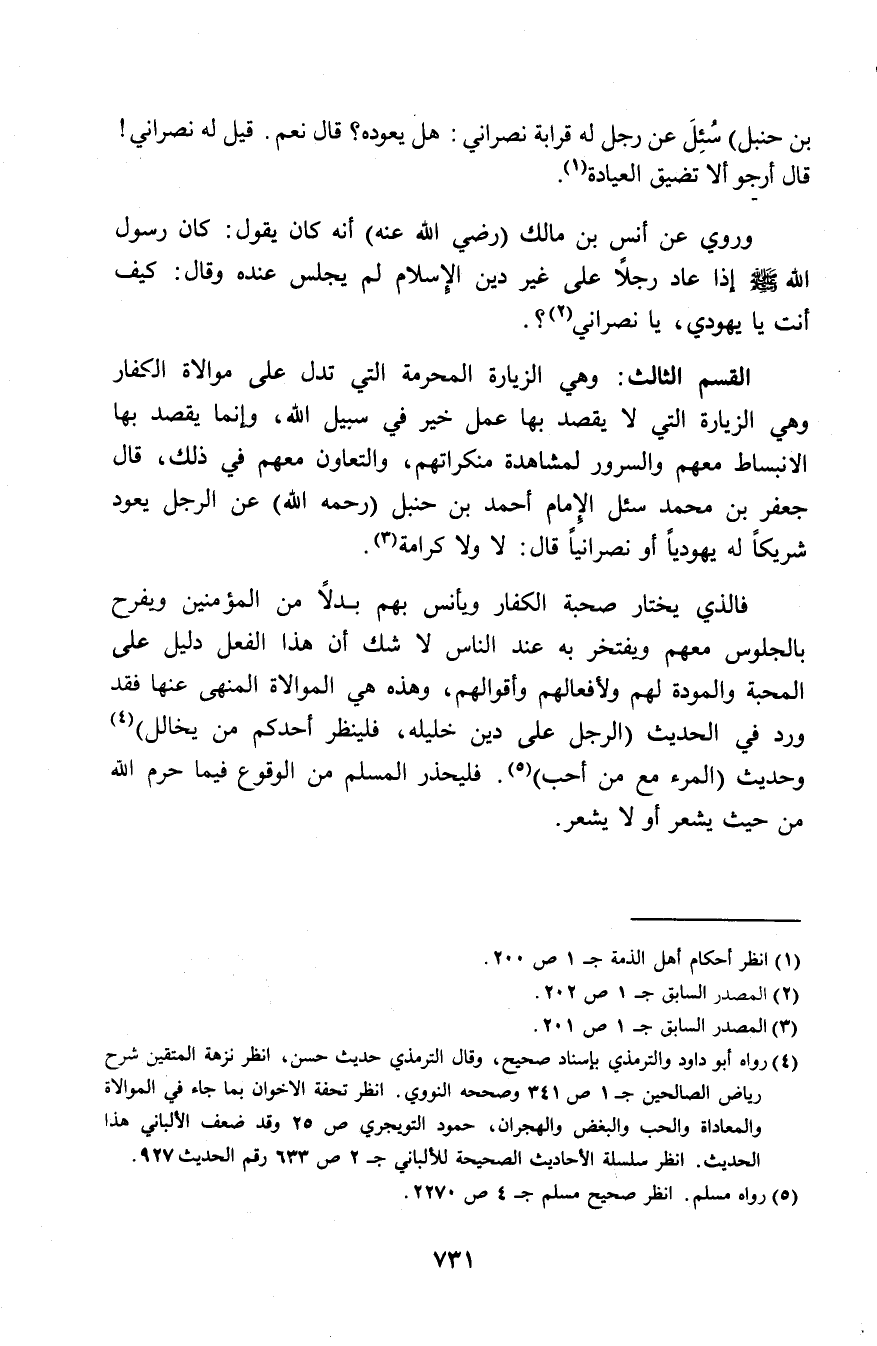 بن حنبل) سُئِلَ عن رجل له قرابة نصراني : هل يعوده؟ قال نعم. قيل له نصراني!
قال أرجو ألا تضيق العيادة(١).
وروي عن أنس بن مالك (رضي الله عنه) أنه كان يقول: كان رسول
الله ﷺ إذا عاد رجلاً على غير دين الإسلام لم يجلس عنده وقال: كيف
أنت يا يهودي، يا نصراني(٢)؟.
القسم الثالث: وهي الزيارة المحرمة التي تدل على موالاة الكفار
وهي الزيارة التي لا يقصد بها عمل خير في سبيل الله، وإنما يقصد بها
الانبساط معهم والسرور لمشاهدة منكراتهم، والتعاون معهم في ذلك، قال
جعفر بن محمد سئل الإمام أحمد بن حنبل (رحمه الله) عن الرجل يعود
شريكاً له يهودياً أو نصرانياً قال: لا ولا كرامة(٣).
فالذي يختار صحبة الكفار ويأنس بهم بدلاً من المؤمنين ويفرح
بالجلوس معهم ويفتخر به عند الناس لا شك أن هذا الفعل دليل على
المحبة والمودة لهم ولأفعالهم وأقوالهم، وهذه هي الموالاة المنهى عنها فقد
ورد في الحديث (الرجل على دين خليله، فلينظر أحدكم من يخالل)(٤)
وحديث (المرء مع من أحب)(٥). فليحذر المسلم من الوقوع فيما حرم الله
من حيث يشعر أو لا يشعر.
(١) انظر أحكام أهل الذمة جـ ١ ص ٢٠٠.
(٢) المصدر السابق جـ ١ ص ٢٠٢.
(٣) المصدر السابق جـ ١ ص ٢٠١.
(٤) رواه أبو داود والترمذي بإسناد صحيح، وقال الترمذي حديث حسن، انظر نزهة المتقين شرح
رياض الصالحين جـ ١ ص ٣٤١ وصححه النووي. انظر تحفة الاخوان بما جاء في الموالاة
والمعاداة والحب والبغض والهجران، حمود التويجري ص ٢٥ وقد ضعف الألباني هذا
الحديث. انظر سلسلة الأحاديث الصحيحة للألباني جـ ٢ ص ٦٣٣ رقم الحديث ٩٢٧.
(٥) رواه مسلم. انظر صحيح مسلم جـ ٤ ص ٢٢٧٠.
٧٣١